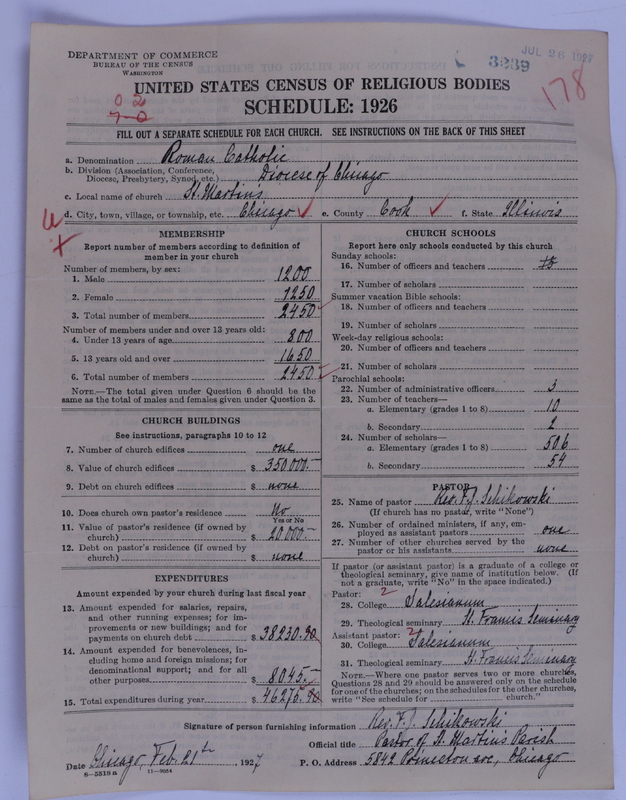 JUL 26 1927
3239
178
DEPARTMENT OF COMMERCE
BUREAU OF THE CENSUS
WASHINGTON
UNITED STATES CENSUS OF RELIGIOUS BODIES
SCHEDULE: 1926
0 2
7-0
FILL OUT A SEPARATE SCHEDULE FOR EACH CHURCH. SEE INSTRUCTIONS ON THE BACK OF THIS SHEET
a. Denomination Roman Catholic
b. Division (Association, Conference, Diocese, Presbytery, Synod, etc.) Diocese of Chicago
c. Local name of church St. Martin's
d. City, town, village, or township, etc. Chicago ✓ e. County Cook ✓ f. State Illinois
MEMBERSHIP
Report number of members according to definition of
member in your church
Number of members, by sex:
1. Male 1200
2. Female 1250
3. Total number of members 2450
Number of members under and over 13 years old:
4. Under 13 years of age 800
5. 13 years old and over 1650
6. Total number of members 2450
NOTE.—The total given under Question 6 should be
the same as the total of males and females given under Question 3.
CHURCH BUILDINGS
See instructions, paragraphs 10 to 12
7. Number of church edifices one
8. Value of church edifices $ 350000.-
9. Debt on church edifices $ none
10. Does church own pastor's residence No
Yes or No
11. Value of pastor's residence (if owned by
church) $ 20,000.-
12. Debt on pastor's residence (if owned by
church) $ none
EXPENDITURES
Amount expended by your church during last fiscal year
13. Amount expended for salaries, repairs,
and other running expenses; for im-
provements or new buildings; and for
payments on church debt $ 38230.90
14. Amount expended for benevolences, in-
cluding home and foreign missions; for
denominational support; and for all
other purposes $ 8045.-
15. Total expenditures during year $ 46275.90
CHURCH SCHOOLS
Report here only schools conducted by this church
Sunday schools:
16. Number of officers and teachers
17. Number of scholars
Summer vacation Bible schools:
18. Number of officers and teachers
19. Number of scholars
Week-day religious schools:
20. Number of officers and teachers
21. Number of scholars
Parochial schools:
22. Number of administrative officers 3
23. Number of teachers—
a. Elementary (grades 1 to 8) 10
b. Secondary 2
24. Number of scholars—
a. Elementary (grades 1 to 8) 506
b. Secondary 54
PASTOR
25. Name of pastor Rev. F. J. Schikowski
(If church has no pastor, write "None")
26. Number of ordained ministers, if any, em-
ployed as assistant pastors one
27. Number of other churches served by the
pastor or his assistants none
If pastor (or assistant pastor) is a graduate of a college or
theological seminary, give name of institution below. (If
not a graduate, write "No" in the space indicated.)
Pastor: 2
28. College Salesianum
29. Theological seminary St. Francis Seminary
Assistant pastor: 2
30. College Salesianum
31. Theological seminary St. Francis Seminary
NOTE.—Where one pastor serves two or more churches,
Questions 28 and 29 should be answered only on the schedule
for one of the churches; on the schedules for the other churches,
write "See schedule for church."
Signature of person furnishing information Rev. F. J. Schikowski
Official title Pastor of St. Martin's Parish
Date Chicago, Feb. 21st, 1927 P. O. Address 5842 Princeton ave, Chicago
8-5318a 11-9054